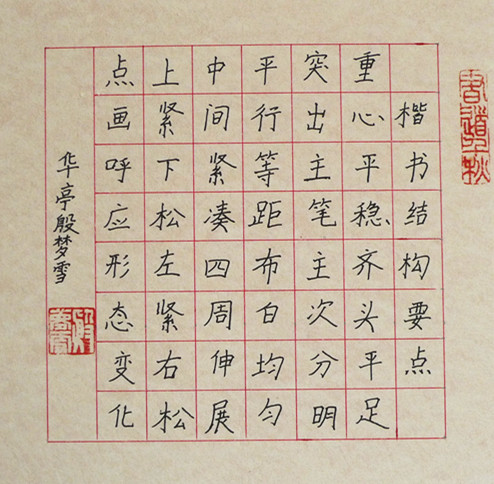 楷书结构要点
重心平稳齐头平足
突出主笔主次分明
平行等距布白均匀
中间紧凑四周伸展
上紧下松左紧右松
点画呼应形态变化
华亭殷梦雪